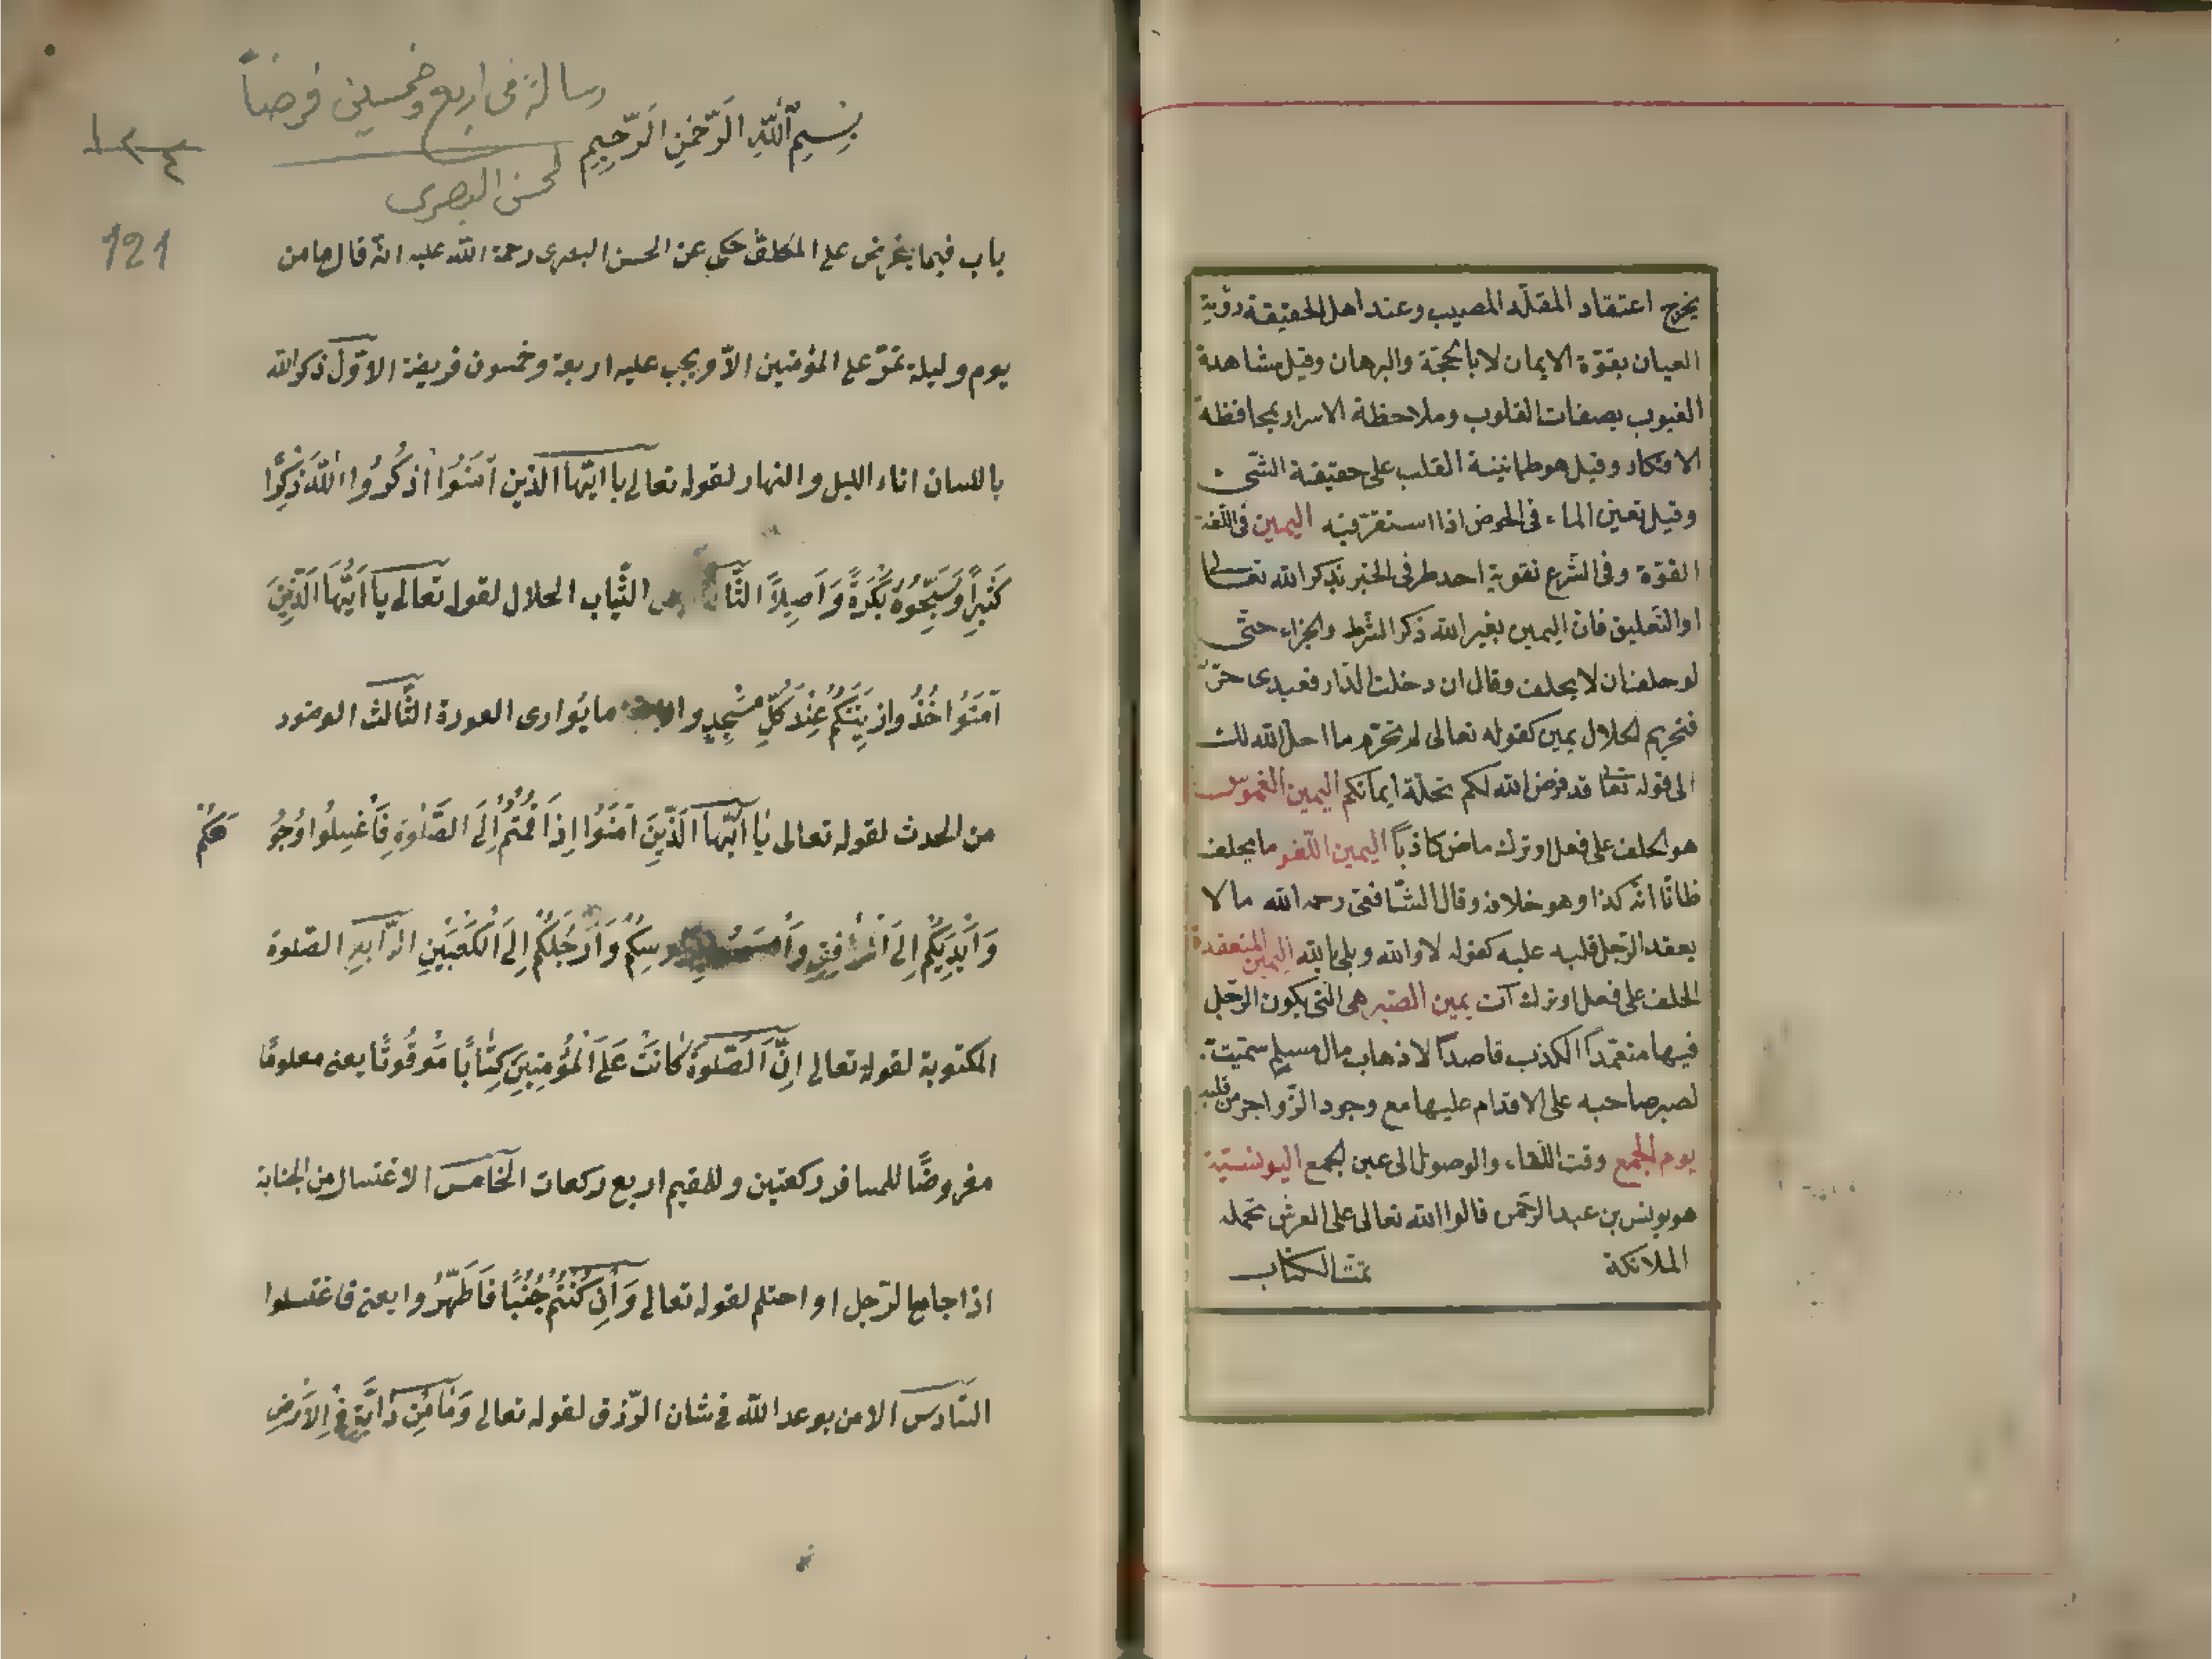 يخرج اعتقاد المقلّد المصيب وعند اهل الحقيقة رؤية
العيان بقوّة الايمان لا بالحجّة والبرهان وقيل مشاهدة
الغيوب بصفات القلوب وملاحظة الاسرار بمحافظة
الافكار وقيل هو طمانينة القلب على حقيقة الشئ
وقيل تعين الماء في الحوض اذا استقرّ فيه اليمين في اللغة
القوّة وفى الشّرع تقوية احد طرفى الخبر بذكر الله تعالى
او التّعليق فانّ اليمين بغير الله ذكر الشرط والجزاء حتّى
لو حلف ان لا يحلف وقال ان دخلت الدّار فعبدى حرّ
فتحريم الحلال يمين كقوله تعالى لم تحرّم ما احلّ الله لك
الى قوله تعالى قد فرض الله لكم تحلّة ايمانكم اليمين الغموس
هو الحلف على فعل او ترك ماض كاذباً اليمين اللّغو ما يحلف
ظانّا انّه كذا وهو خلافه وقال الشّافعى رحمه الله ما لا
يعقد الرّجل قلبه عليه كقوله لا والله وبلى بالله اليمين المنعقدة
الحلف على فعل او ترك آت يمين الصّبر هى الّتى يكون الرّجل
فيها متعمّداً الكذب قاصداً لاذهاب مال مسلم سمّيت
لصبر صاحبه على الاقدام عليها مع وجود الزّواجر من قلبه
يوم الجمع وقت اللّقاء والوصول الى عين الجمع اليونسيّة
هو يونس بن عبد الرّحمن قالوا الله تعالى على العرش تحمله
الملائكة تمت الكتاب
رسالة فى اربع وخمسين فرضاً
لحسن البصرى
١٢٤
121
بِسْمِ اللّهِ الرَّحْمنِ الرَّحِيمِ
باب فيما يفرض على المكلّف حكى عن الحسن البصرى رحمة الله عليه انّه قال ما من
يوم وليلة تمرّ على المؤمنين الّا ويجب عليه اربعة وخمسون فريضة الاوّل ذكر الله
باللسان اناء الليل والنهار لقوله تعالى يا ايّها الذين آمَنُوا اذْكُرُوا اللّهَ ذِكْرًا
كَثِيرًا وَسَبِّحُوهُ بُكْرَةً وَاَصِيلًا الثّانى الثّياب الحلال لقوله تعالى يا اَيُّهَا الَّذِينَ
آمَنُوا خُذُوا زِينَتَكُمْ عِنْدَ كُلِّ مَسْجِدٍ ما يُوارى العورة الثّالث الوضوء
من الحدث لقوله تعالى يا اَيّها الَّذِينَ آمَنُوا اِذَا قُمْتُمْ اِلَى الصَّلوةِ فَاغْسِلُوا وُجُوهَكُمْ
وَاَيْدِيَكُمْ اِلَى الْمَرافِقِ وَامْسَحُوا بِرُؤُسِكُمْ وَاَرْجُلَكُمْ اِلَى الْكَعْبَيْنِ الرّابع الصّلوة
المكتوبة لقوله تعالى اِنَّ الصَّلوةَ كانَتْ عَلَى الْمُؤْمِنِينَ كِتَابًا مَوْقُوتًا يعنى معلومًا
مفروضًا للمسافر ركعتين وللمقيم اربع ركعات الخامس الاغتسال من الجنابة
اذا جامع الرّجل او احتلم لقوله تعالى وَاِنْ كُنْتُمْ جُنُبًا فَاطَّهَّرُوا يعنى فاغتسلوا
السّادس الامن بوعد الله فى شان الرّزق لقوله تعالى وَمَا مِنْ دَابَّةٍ فِى الاَرْضِ